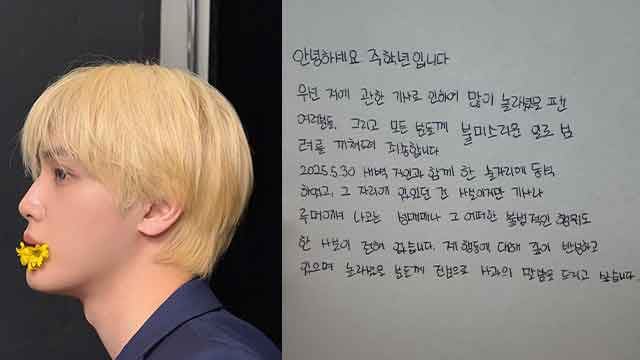 안녕하세요 주학년입니다
우선 저에 관한 기사로 인하여 많이 놀라셨을 팬
여러분들, 그리고 모든 분들께 불미스러운 일로 심
려를 끼쳐드려 죄송합니다
2025.5.30 새벽 지인과 함께 한 술자리에 동석
하였고, 그 자리에 있었던 건 사실이지만 기사나
루머에서 나오는 성매매나 그 어떠한 불법적인 행위도
한 사실이 전혀 없습니다. 제 행동에 대해 깊이 반성하고
있으며 놀라셨을 분들께 진심으로 사과의 말씀을 드리고 싶습니다.